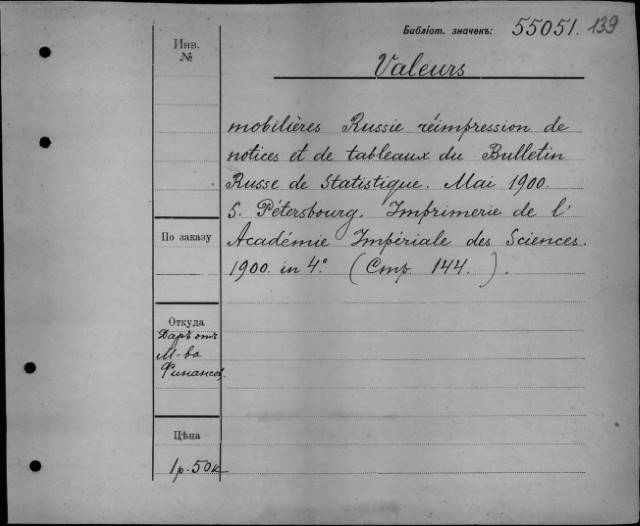 Библіот. значекъ: 55051. 139
Инв.
№
Valeurs
mobilières Russie réimpression de
notices et de tableaux du Bulletin
Russe de Statistique. Mai 1900.
S. Pétersbourg. Imprimerie de l'
По заказу
Académie Impériale des Sciences.
1900. in 4° (Стр. 144.).
Откуда
Даръ отъ
М-ва
Финансов
Цѣна
1р-50к